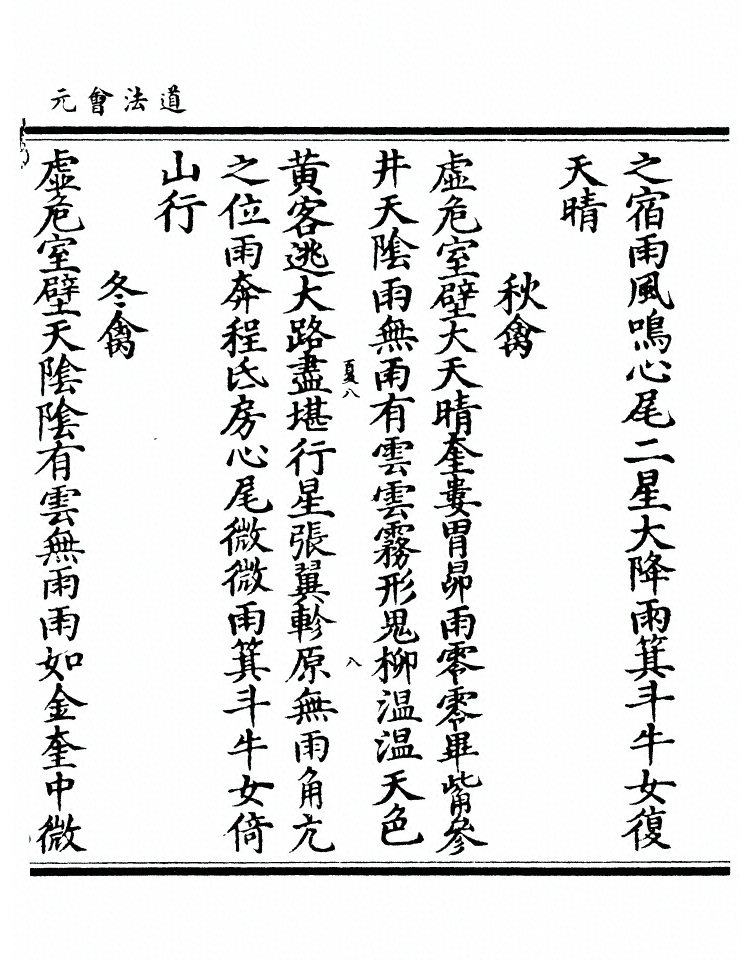 道法會元
之宿雨風鳴心尾二星大降雨箕斗牛女復
天晴
秋禽
虛危室壁大天晴奎婁胃昴雨零零畢觜參
井天陰雨無雨有雲雲霧形鬼柳温温天色
夏八
八
黄客逃大路盡堪行星張翼軫原無雨角亢
之位雨奔程氐房心尾微微雨箕斗牛女倚
山行
冬禽
虛危室壁天陰陰有雲無雨雨如金奎中微